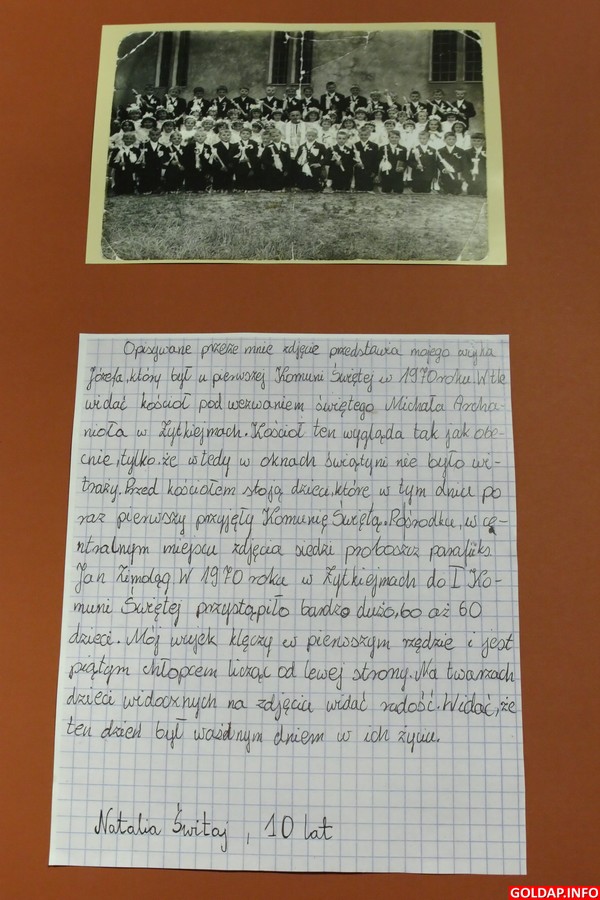 Opisywane przeze mnie zdjęcie przedstawia mojego wujka
Józefa, który był u pierwszej Komuni Świętej w 1970 roku. W tle
widać kościół pod wezwaniem świętego Michała Archa-
nioła w Żytkiejmach. Kościół ten wygląda tak jak obe-
cnie, tylko, że wtedy w oknach świątyni nie było wi-
traży. Przed kościołem stoją dzieci, które w tym dniu po
raz pierwszy przyjęły Komunię Świętą. Pośrodku, w ce-
ntralnym miejscu zdjęcia siedzi proboszcz parafii ks.
Jan W 1970 roku w Żytkiejmach do I Ko-
muni Świętej przystąpiło bardzo dużo, bo aż 60
dzieci. Mój wujek klęczy w pierwszym rzędzie i jest
piątym chłopcem licząc od lewej strony. Na twarzach
dzieci widocznych na zdjęciu widać radość. Widać, że
ten dzień był ważnym dniem w ich życiu.
Natalia Świtaj, 10 lat
GOLDAP.INFO